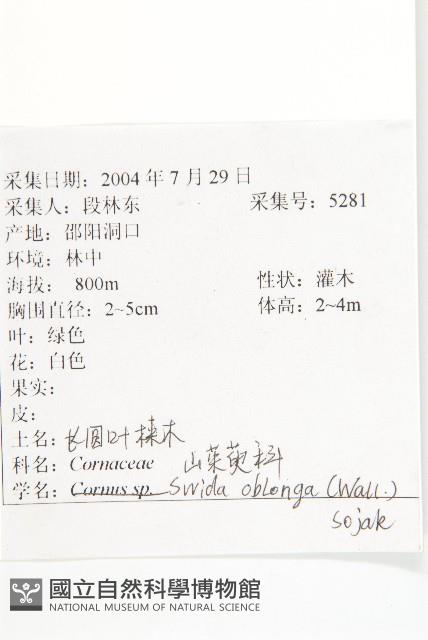 采集日期：2004 年 7 月 29 日
采集人：段林东 采集号：5281
产地：邵阳洞口
环境：林中
海拔： 800m 性状：灌木
胸围直径：2~5cm 体高：2~4m
叶：绿色
花：白色
果实：
皮：
土名：长圆叶梾木
科名：Cornaceae 山茱萸科
学名：Cornus sp. Swida oblonga (Wall.)
Sojak
國立自然科學博物館
NATIONAL MUSEUM OF NATURAL SCIENCE